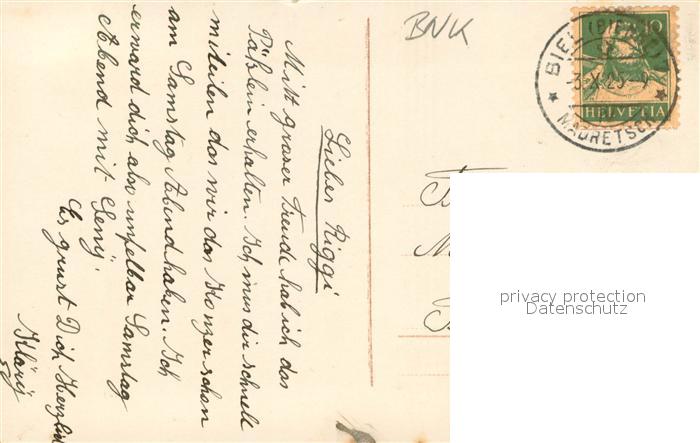 Liebes Riggi
Mitt groser Freude hab ich das
Päcklein erhalten. Ich mus dir schnell
miteilen das wir das Konzer schon
am Samstag Abend haben. Ich
erward dich also unfelbar Samstag
Abend mit
Es grust Dich Herzlich
Kläry
BNK
BIEL (BIENNE)
MADRETSCH
10
HELVETIA
privacy protection
Datenschutz